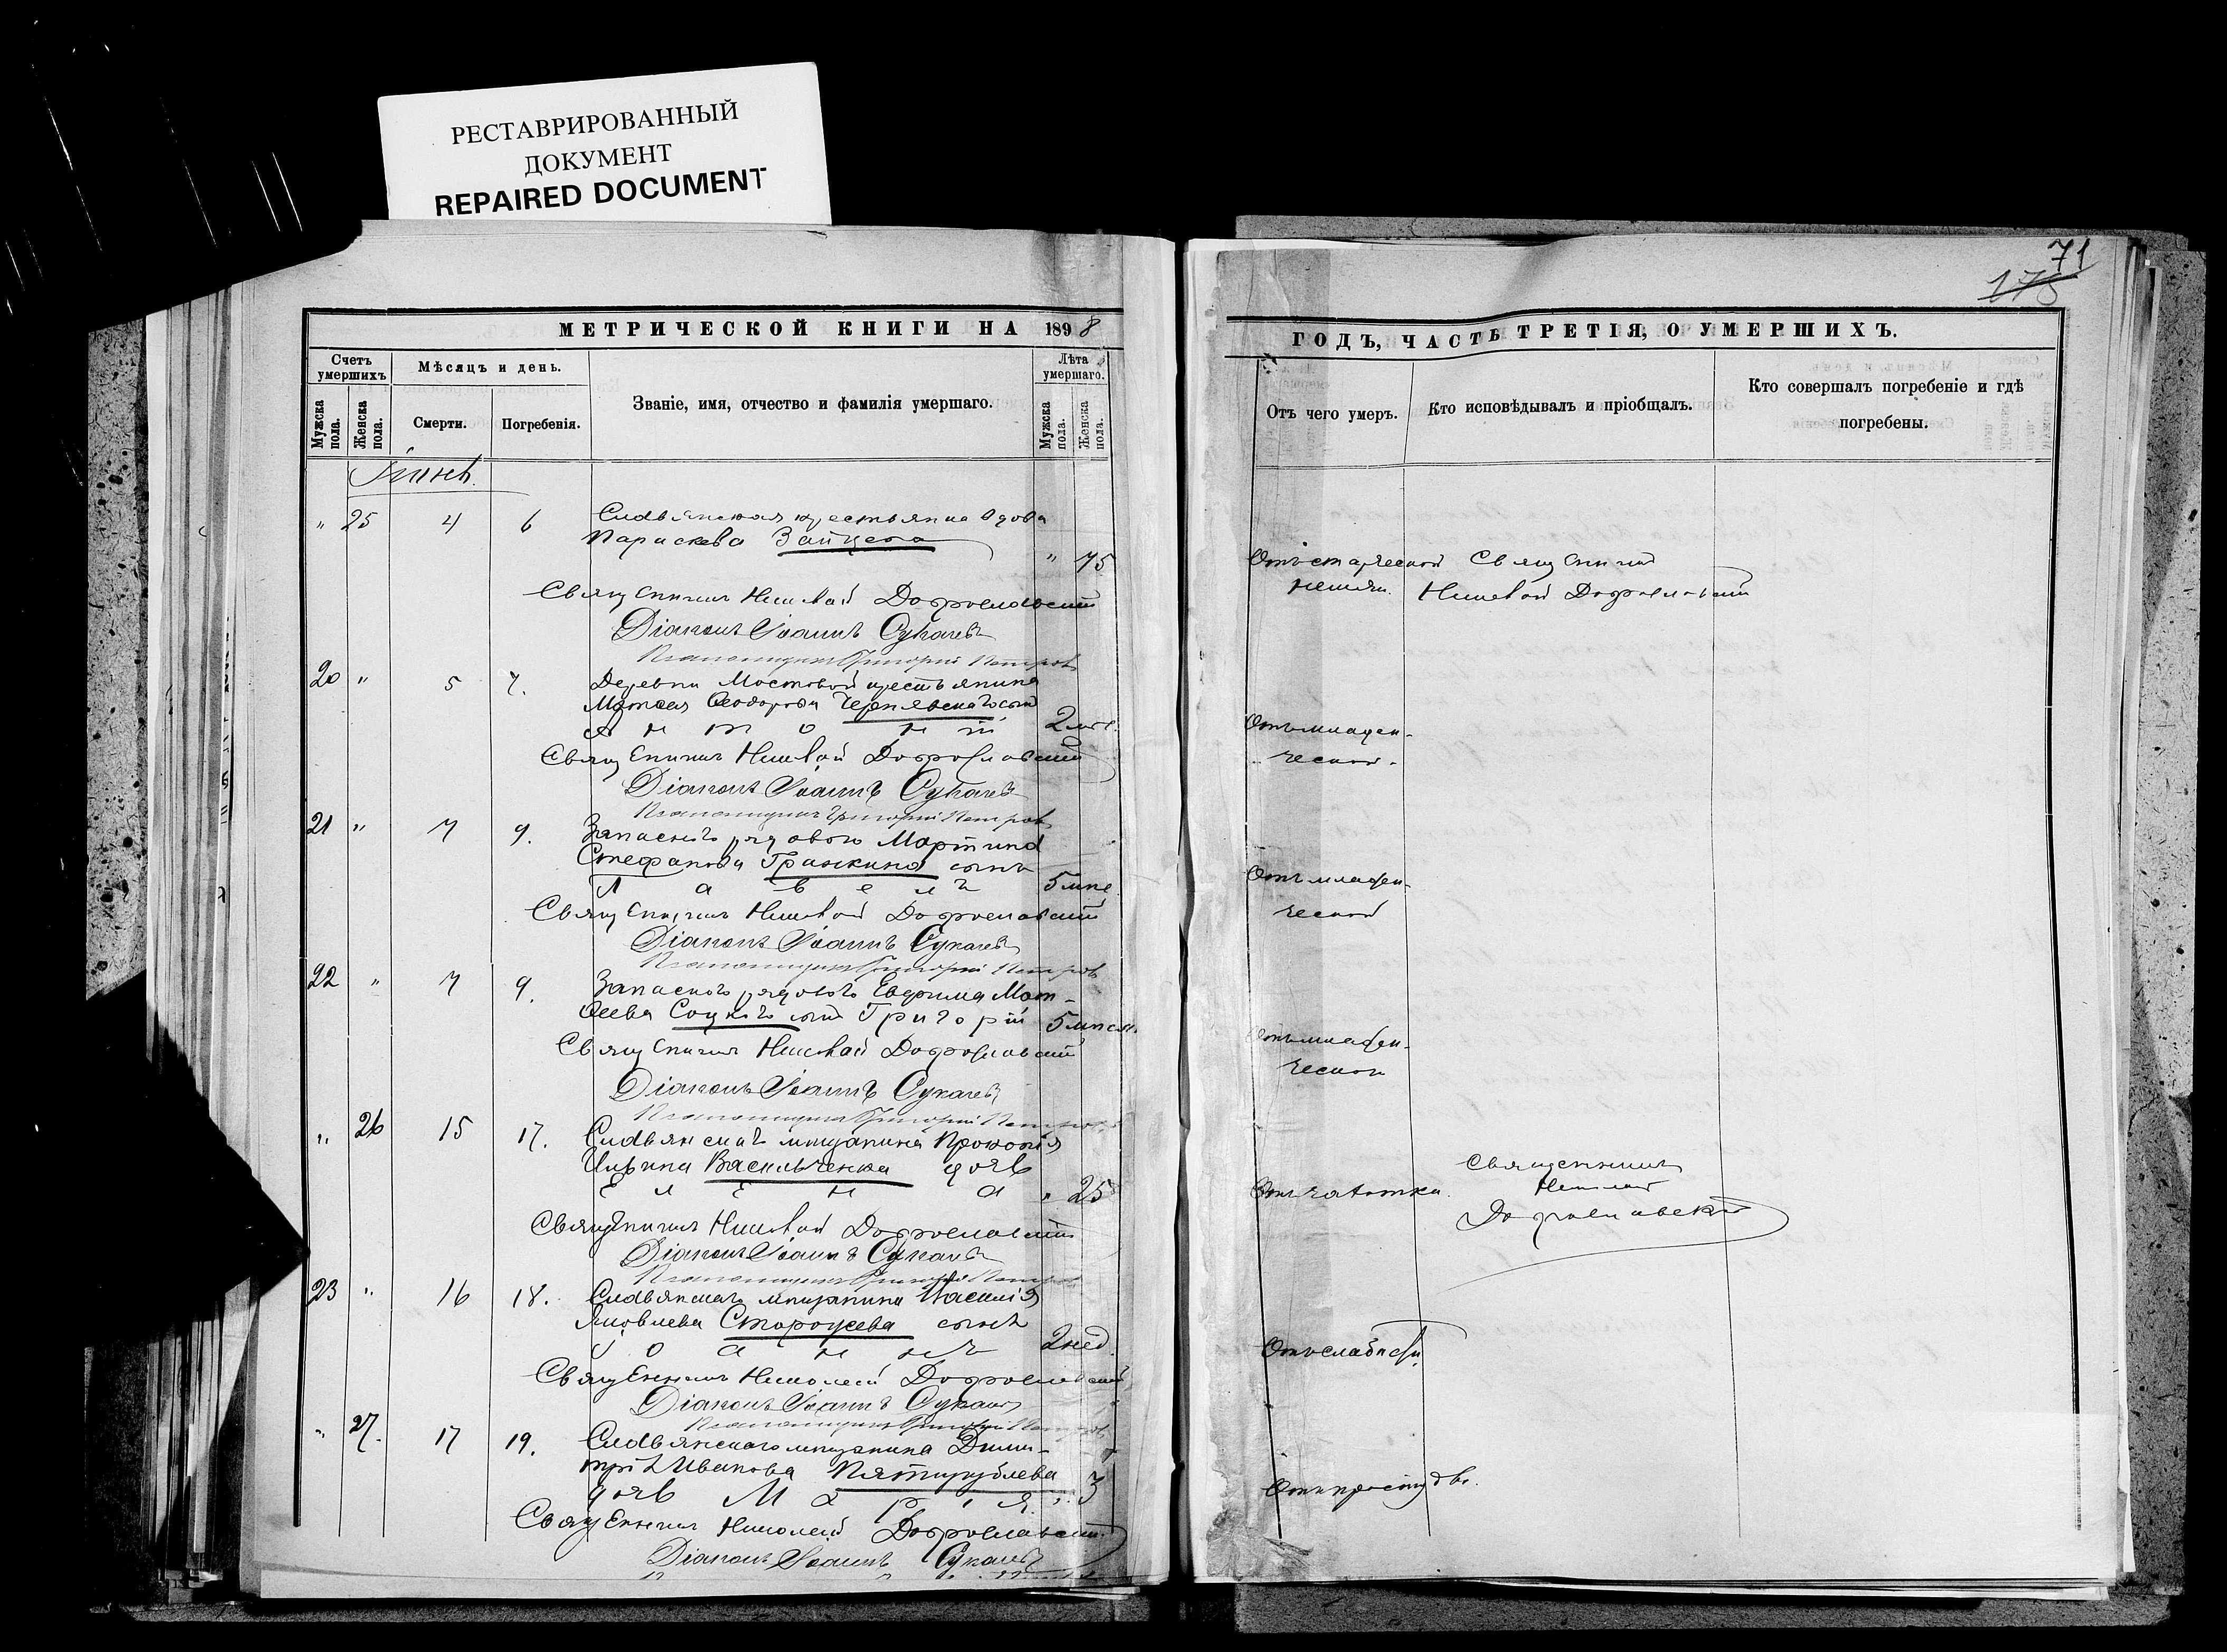 РЕСТАВРИРОВАННЫЙ
ДОКУМЕНТ
REPAIRED DOCUMENT
71
175
МЕТРИЧЕСКОЙ КНИГИ НА 1898
ГОДЪ, ЧАСТЬ ТРЕТІЯ, О УМЕРШИХЪ.
Счетъ умершихъ
Мужска пола.
Женска пола.
Мѣсяцъ и день.
Смерти.
Погребенія.
Званіе, имя, отчество и фамилія умершаго.
Лѣта умершаго.
Мужска пола.
Женска пола.
Отъ чего умеръ.
Кто исповѣдывалъ и пріобщалъ.
Кто совершалъ погребеніе и гдѣ
погребены.
" 25 4 6 Славянская крестьянка вдова
Параскева Зайцева
" 75
Отъ старческой Священникъ
Николай Доброславскій
Священникъ Николай Доброславскій
Діаконъ Іоаннъ Сукачевъ
Псаломщикъ Григорій Петровъ
20 " 5 7. Деревни Мостовой крестьянина
Матвея Ѳеодорова Чернявскаго сынъ
Антоній 2
Отъ младен-
ческой.
Священникъ Николай Доброславскій
Діаконъ Іоаннъ Сукачевъ
Псаломщикъ Григорій Петровъ
21 " 7 9. Запаснаго рядового Мартина
Стефанова сынъ
Павелъ 5
Отъ младен-
ческой
Священникъ Николай Доброславскій
Діаконъ Іоаннъ Сукачевъ
Псаломщикъ Григорій Петровъ
22 " 7 9. Запаснаго рядового Евфима Мат-
ѳеева Соцкаго сынъ Григорій 5
Отъ младен-
ческой
Священникъ Николай Доброславскій
Діаконъ Іоаннъ Сукачевъ
Псаломщикъ Григорій Петровъ
" 26 15 17. Славянскаго мѣщанина Прокопія
Васильченка дочь
Елена " 25
Отъ чахотки. Священникъ
Николай
Доброславскій
Священникъ Николай Доброславскій
Діаконъ Іоаннъ Сукачевъ
Псаломщикъ Григорій Петровъ
23 " 16 18. Славянскаго мѣщанина Василія
Яковлева сынъ
Іоаннъ 2 нед.
Отъ слабости.
Священникъ Николай Доброславскій
Діаконъ Іоаннъ Сукачевъ
Псаломщикъ Григорій Петровъ
" 27. 17 19. Славянскаго мѣщанина Дими-
трія Иванова Пятирублева
дочь Марія. " 3
Отъ простуды.
Священникъ Николай Доброславскій
Діаконъ Іоаннъ Сукачевъ